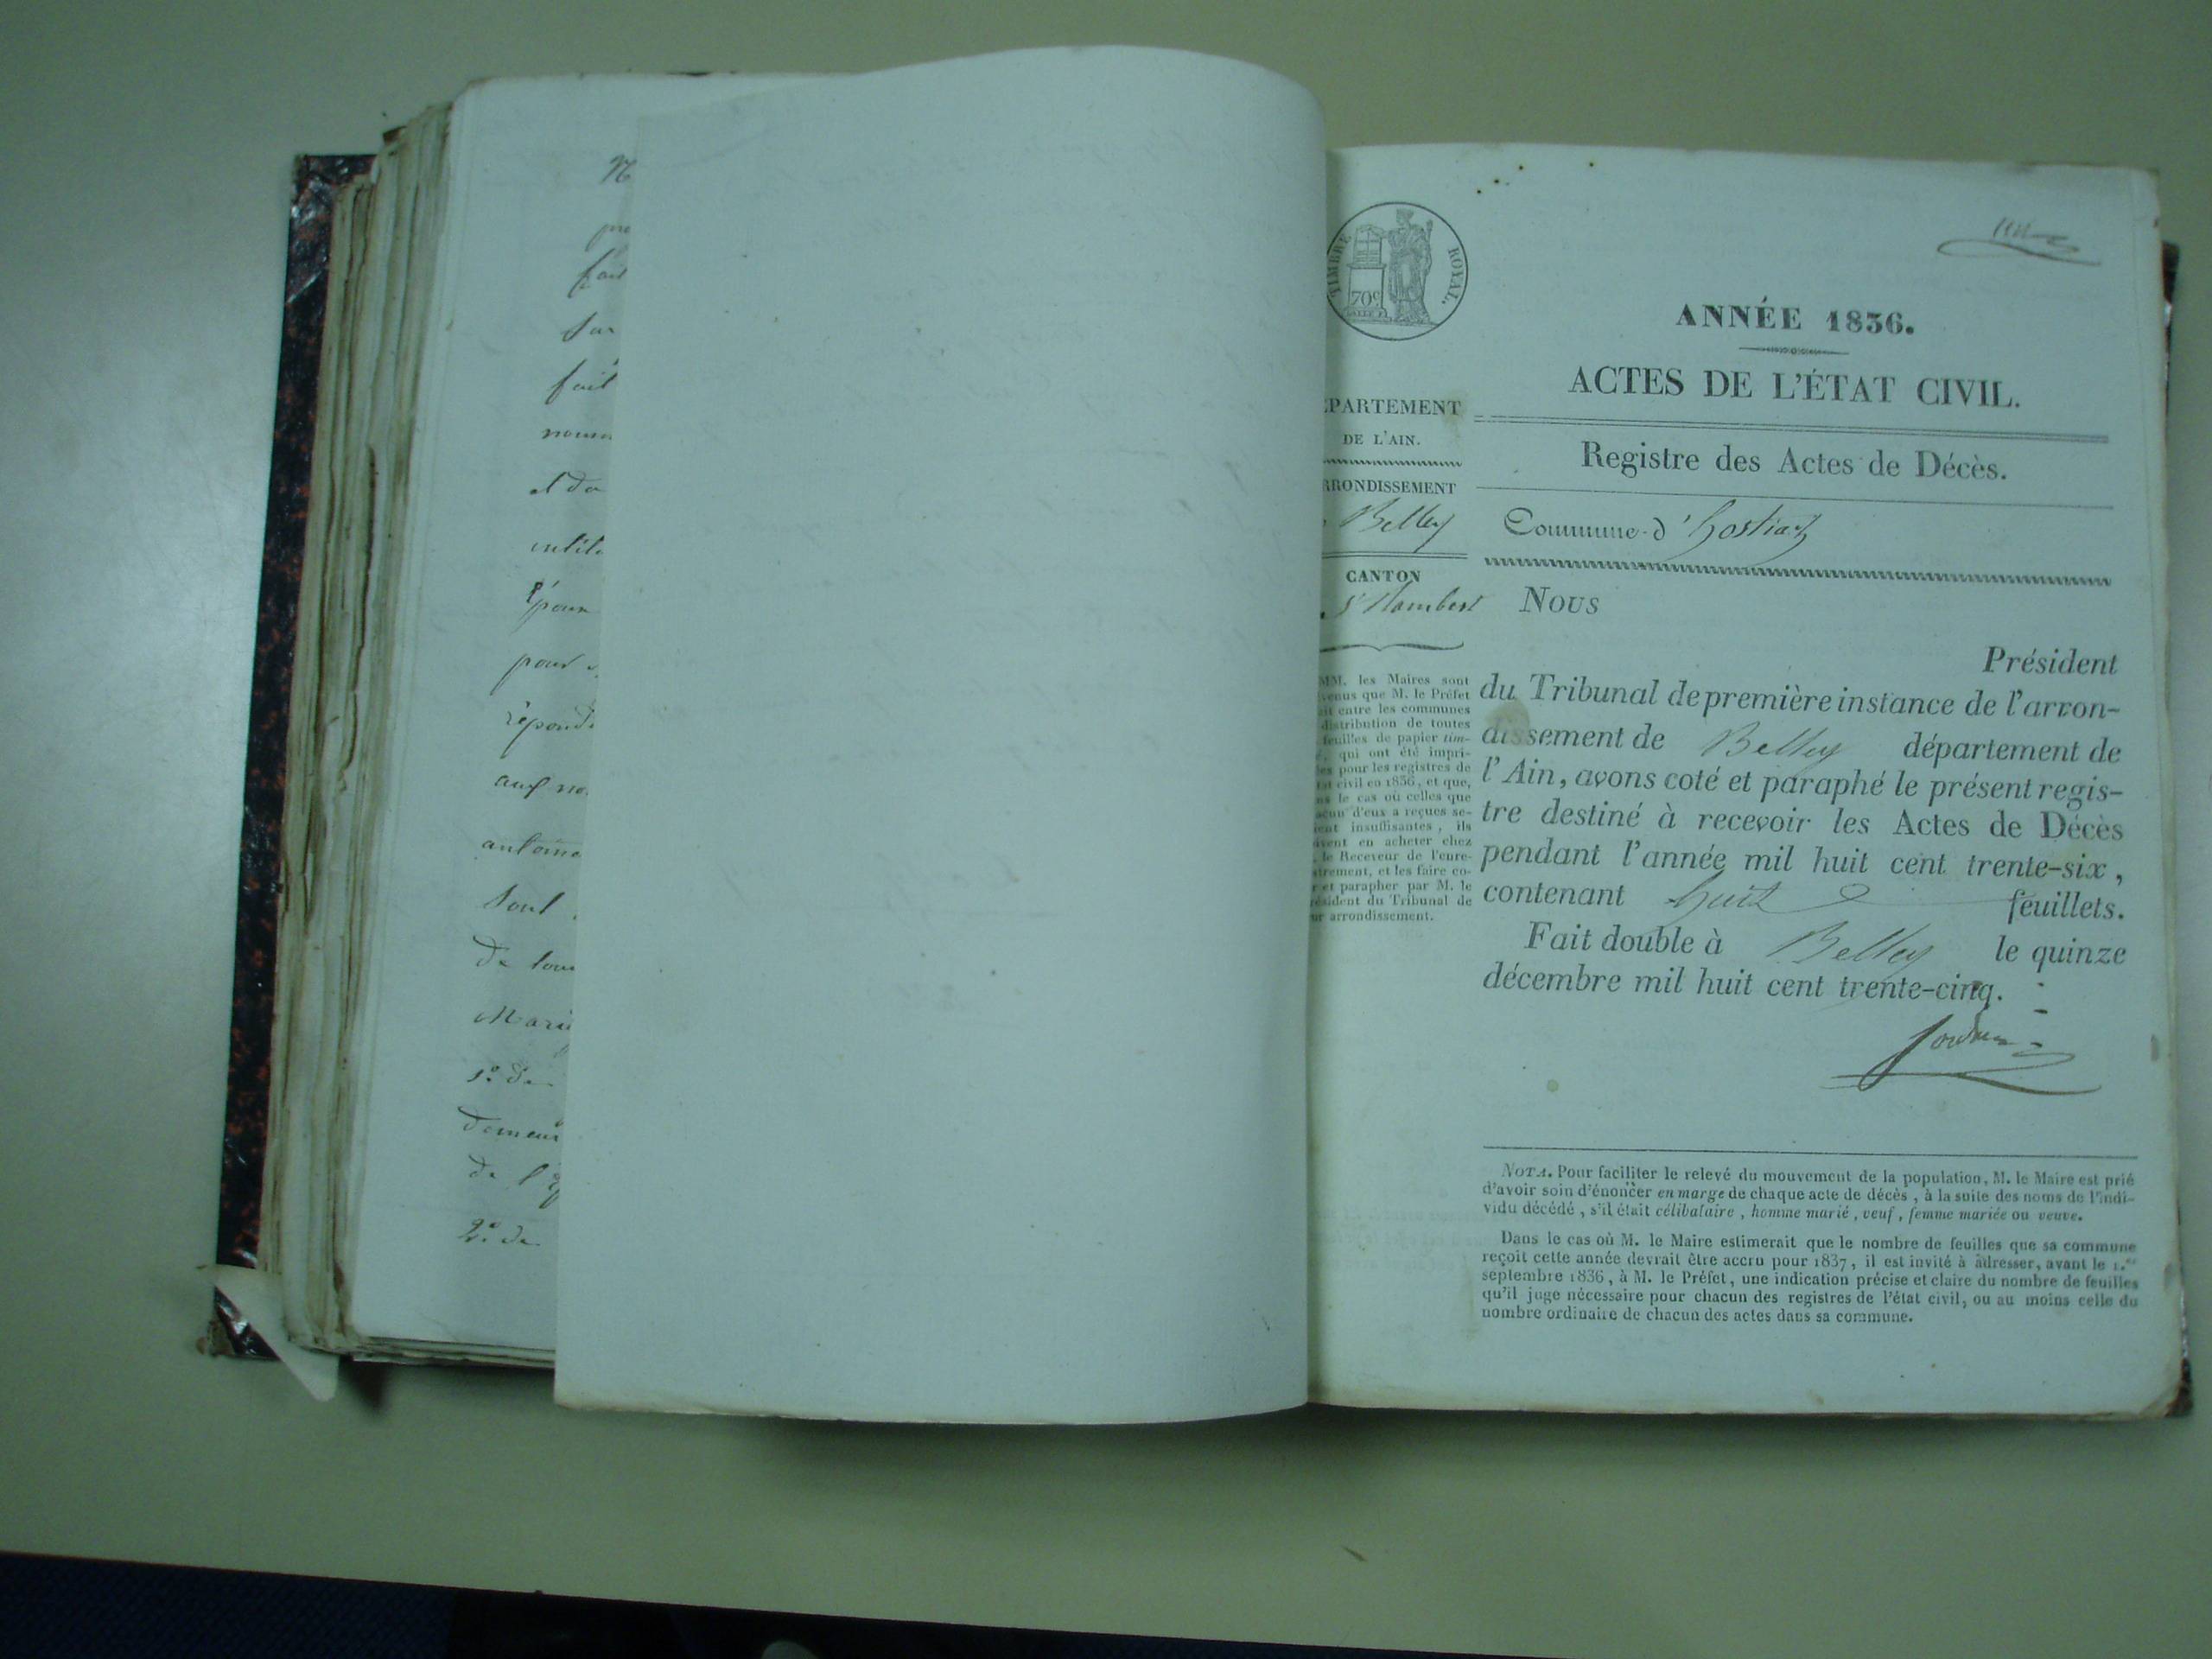 pre
fait
Sur
fait
nomm
et da
intit
pour
pour
répond
auf no
antoine
Sont
De tou
Marie
1.º de
Demeur
de l'Ep
2.º de
TIMBRE ROYAL.
70 c
ANNÉE 1836.
ACTES DE L'ÉTAT CIVIL.
Registre des Actes de Décès.
Commune d'hostiaz
PARTEMENT
DE L'AIN.
RRONDISSEMENT
Belley
CANTON
St Rambert
MM. les Maires sont
venus que M. le Préfet
ait entre les communes
distribution de toutes
feuilles de papier tim-
qui ont été impri-
es pour les registres de
at civil en 1836, et que,
ns le cas où celles que
acun d'eux a reçues se-
ient insuffisantes, ils
ivent en acheter chez
le Receveur de l'enre-
strement, et les faire co-
r et parapher par M. le
ésident du Tribunal de
ur arrondissement.
Nous
Président
du Tribunal de première instance de l'arron-
dissement de Belley département de
l'Ain, avons coté et paraphé le présent regis-
tre destiné à recevoir les Actes de Décès
pendant l'année mil huit cent trente-six,
contenant huit feuillets.
Fait double à Belley le quinze
décembre mil huit cent trente-cinq.
NOTA. Pour faciliter le relevé du mouvement de la population, M. le Maire est prié
d'avoir soin d'énoncer en marge de chaque acte de décès, à la suite des noms de l'indi-
vidu décédé, s'il était célibataire, homme marié, veuf, femme mariée ou veuve.
Dans le cas où M. le Maire estimerait que le nombre de feuilles que sa commune
reçoit cette année devrait être accru pour 1837, il est invité à adresser, avant le 1.er
septembre 1836, à M. le Préfet, une indication précise et claire du nombre de feuilles
qu'il juge nécessaire pour chacun des registres de l'état civil, ou au moins celle du
nombre ordinaire de chacun des actes dans sa commune.